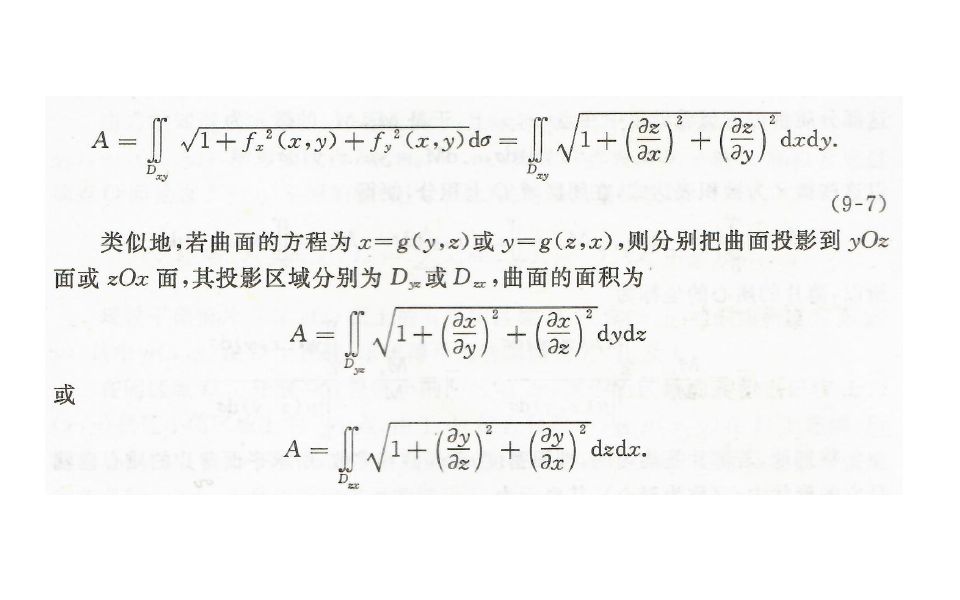 A = ∬_{D_{xy}} √(1+f_x²(x,y)+f_y²(x,y)) dσ = ∬_{D_{xy}} √(1+(∂z/∂x)²+(∂z/∂y)²) dxdy.
(9-7)
类似地,若曲面的方程为 x=g(y,z)或 y=g(z,x),则分别把曲面投影到 yOz
面或 zOx 面,其投影区域分别为 D_{yz}或 D_{zx},曲面的面积为
A = ∬_{D_{yz}} √(1+(∂x/∂y)²+(∂x/∂z)²) dydz
或
A = ∬_{D_{zx}} √(1+(∂y/∂z)²+(∂y/∂x)²) dzdx.